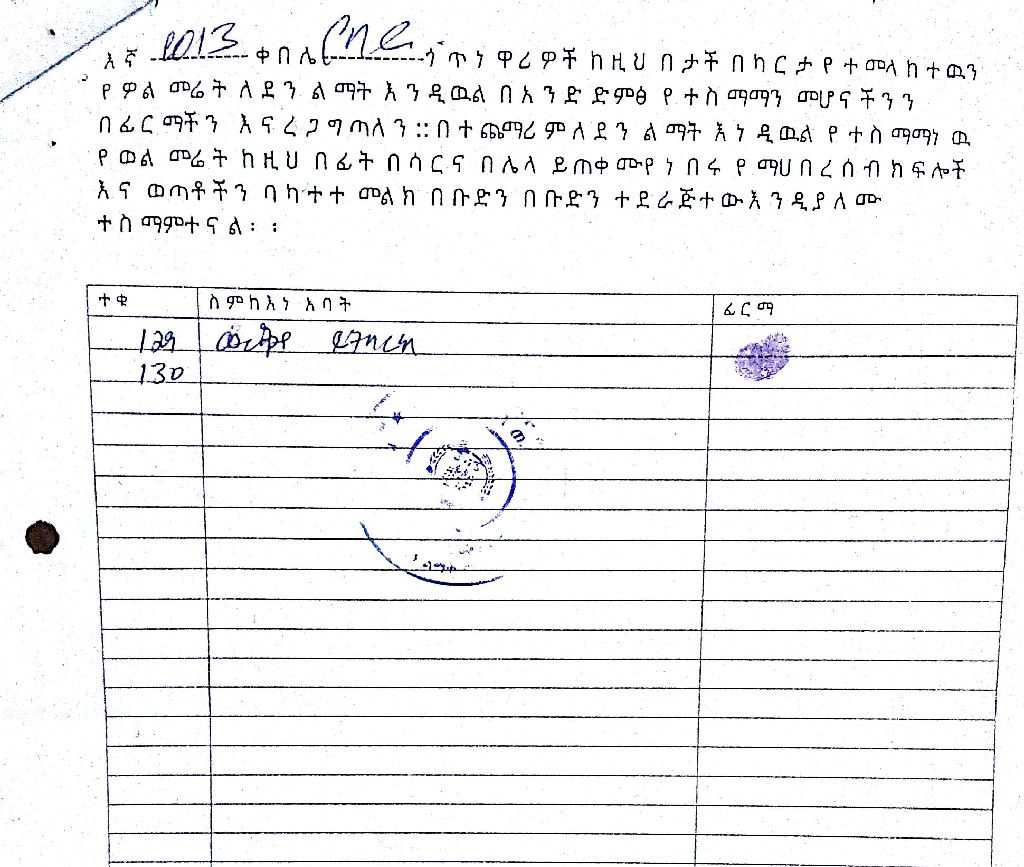 እኛ 013 ቀበሌ ጎጥ ነዋሪዎች ከዚህ በታች በካርታ የተመላከተዉን
የዎል መሬት ለደን ልማት እንዲዉል በአንድ ድምፅ የተስማማን መሆናችንን
በፊርማችን እናረጋግጣለን ::በተጨማሪም ለደን ልማት እነዲዉል የተስማማነዉ
የወል መሬት ከዚህ በፊት በሳርና በሌላ ይጠቀሙየነበሩ የማህበረሰብ ክፍሎች
እና ወጣቶችን ባካተተ መልክ በቡድን በቡድን ተደራጅተውእንዲያለሙ
ተስማምተናል፡፡
ተቁ ስምከእነ አባት ፊርማ
129
130